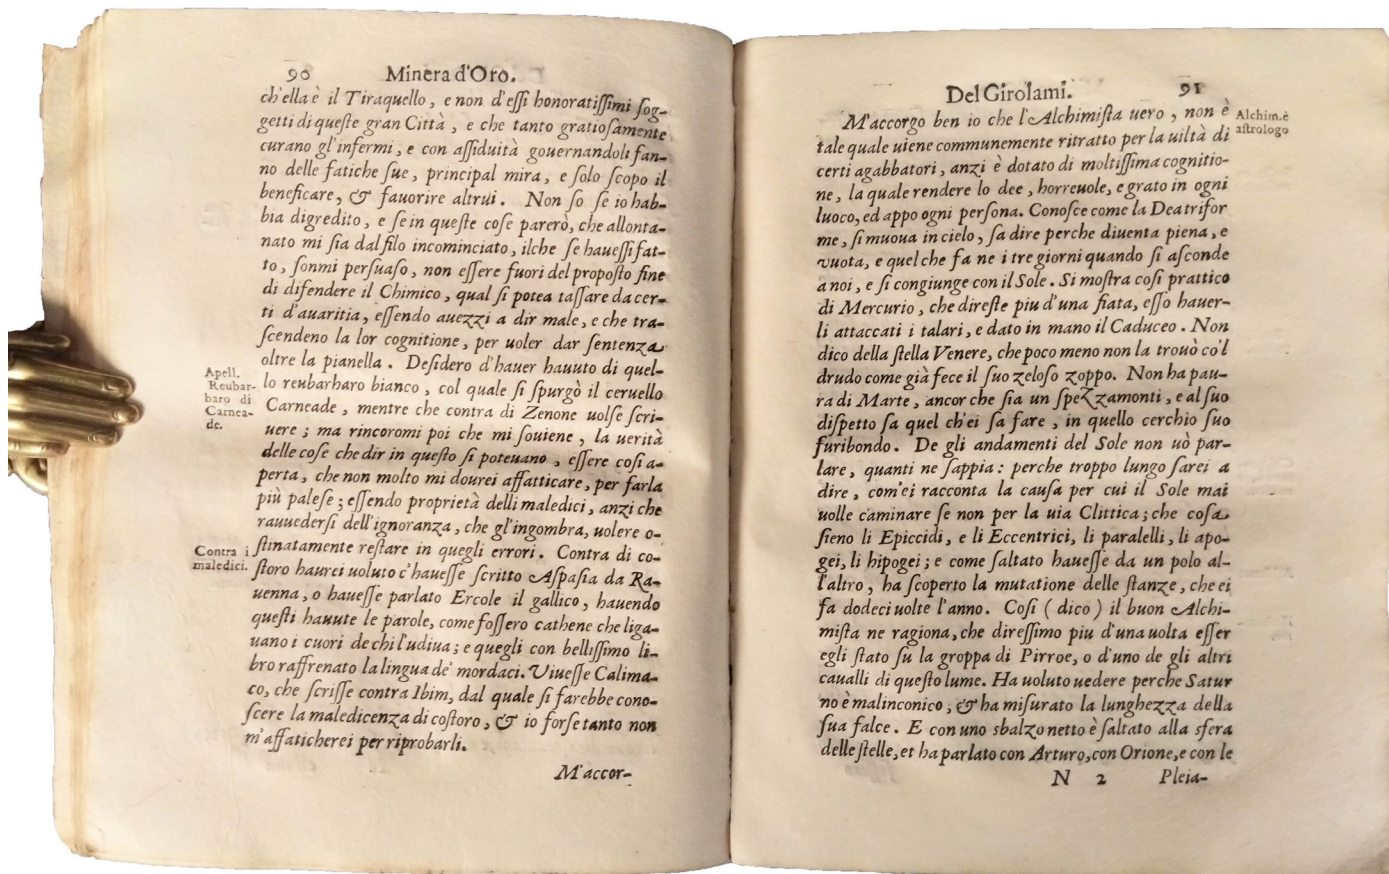 90 Minera d'Oro.
ch'ella è il Tiraquello, e non d'eſſi honoratiſſimi ſog-
getti di queſte gran Città, e che tanto gratioſamente
curano gl'infermi, e con aſſiduità gouernandoli fan-
no delle fatiche ſue, principal mira, e ſolo ſcopo il
beneficare, & fauorire altrui. Non ſo ſe io hab-
bia digredito, e ſe in queſte coſe parerò, che allonta-
nato mi ſia dal filo incominciato, ilche ſe haueſſi fat-
to, ſonmi perſuaſo, non eſſere fuori del propoſto fine
di difendere il Chimico, qual ſi potea taſſare da cer-
ti d'auaritia, eſſendo auezzi a dir male, e che tra-
ſcendeno la lor cognitione, per uoler dar ſentenza
oltre la pianella. Deſidero d'hauer hauuto di quel-
lo reubarbaro bianco, col quale ſi ſpurgò il ceruello
Carneade, mentre che contra di Zenone uolſe ſcri-
uere; ma rincoromi poi che mi ſouiene, la uerità
delle coſe che dir in queſto ſi poteuano, eſſere coſi a-
perta, che non molto mi dourei affatticare, per farla
più paleſe; eſſendo proprietà delli maledici, anzi che
rauuederſi dell'ignoranza, che gl'ingombra, uolere o-
ſtinatamente reſtare in quegli errori. Contra di co-
ſtoro haurei uoluto c'haueſſe ſcritto Aſpaſia da Ra-
uenna, o haueſſe parlato Ercole il gallico, hauendo
queſti hauute le parole, come foſſero cathene che liga-
uano i cuori de chi l'udiua; e quegli con belliſſimo li-
bro raffrenato la lingua de' mordaci. Viueſſe Calima-
co, che ſcriſſe contra Ibim, dal quale ſi farebbe cono-
ſcere la maledicenza di coſtoro, & io forſe tanto non
m'affaticherei per riprobarli.
M'accor-
Apell.
Reubar-
baro di
Carnea-
de.
Contra i
maledici.
Del Girolami. 91
M'accorgo ben io che l'Alchimiſta uero, non è
tale quale uiene communemente ritratto per la uiltà di
certi agabbatori, anzi è dotato di moltiſſima cognitio-
ne, la quale rendere lo dee, horreuole, e grato in ogni
luoco, ed appo ogni perſona. Conoſce come la Dea trifor
me, ſi muoua in cielo, ſa dire perche diuenta piena, e
vuota, e quel che fa ne i tre giorni quando ſi aſconde
a noi, e ſi congiunge con il Sole. Si moſtra coſi prattico
di Mercurio, che direſte piu d'una fiata, eſſo hauer-
li attaccati i talari, e dato in mano il Caduceo. Non
dico della ſtella Venere, che poco meno non la trouò co'l
drudo come già fece il ſuo zeloſo zoppo. Non ha pau-
ra di Marte, ancor che ſia un ſpezzamonti, e al ſuo
diſpetto ſa quel ch'ei ſa fare, in quello cerchio ſuo
furibondo. De gli andamenti del Sole non uò par-
lare, quanti ne ſappia: perche troppo lungo ſarei a
dire, com'ei racconta la cauſa per cui il Sole mai
uolle caminare ſe non per la uia Clittica; che coſa
ſieno li Epiccidi, e li Eccentrici, li paralelli, li apo-
gei, li hipogei; e come ſaltato haueſſe da un polo al-
l'altro, ha ſcoperto la mutatione delle ſtanze, che ei
fa dodeci uolte l'anno. Coſi (dico) il buon Alchi-
miſta ne ragiona, che direſſimo piu d'una uolta eſſer
egli ſtato ſu la groppa di Pirroe, o d'uno de gli altri
caualli di queſto lume. Ha uoluto uedere perche Satur
no è malinconico, & ha miſurato la lunghezza della
ſua falce. E con uno sbalzo netto è ſaltato alla sfera
delle ſtelle, et ha parlato con Arturo, con Orione, e con le
N 2 Pleia-
Alchim.è
aſtrologo